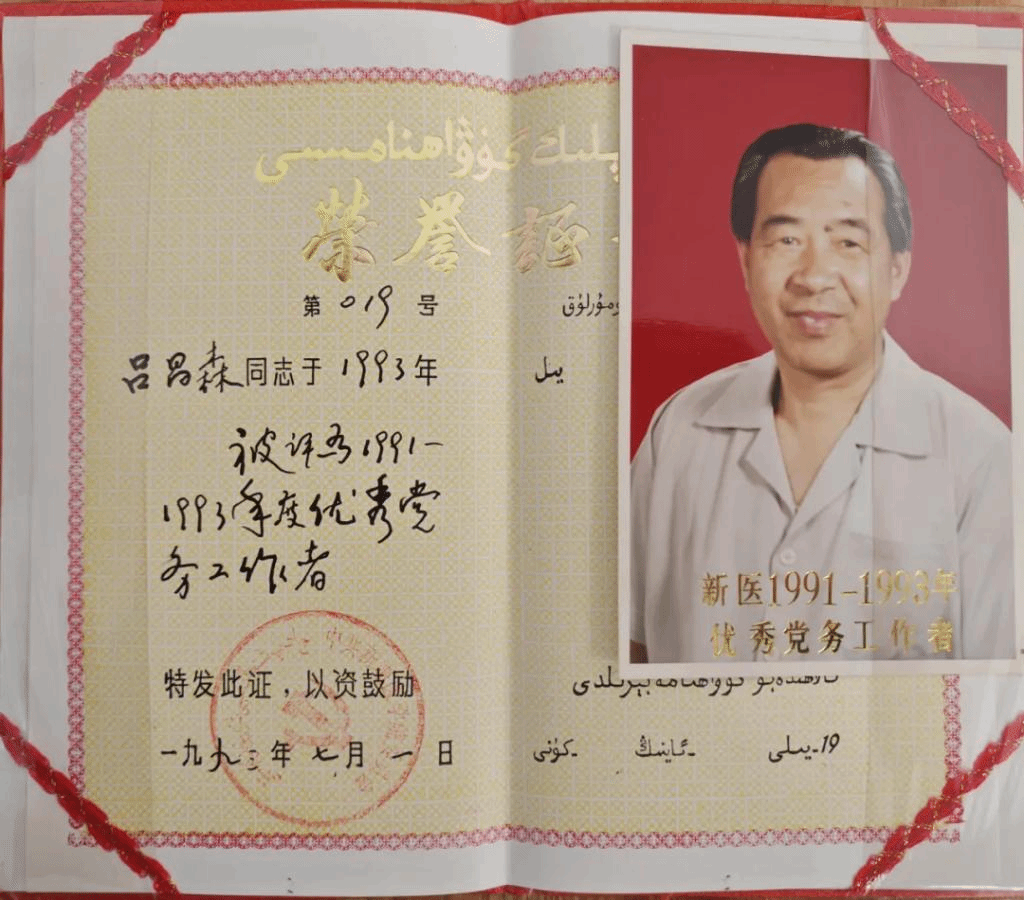 گۇۋاھنامىسى
荣誉证
第019号
吕昌森同志于1993年
被评为1991-
1993年度优秀党
务工作者
特发此证，以资鼓励
一九九三年七月一日
يىل
بېرىلدى
19-يىلى -ئاينىڭ -كۈنى
新医1991-1993年
优秀党务工作者